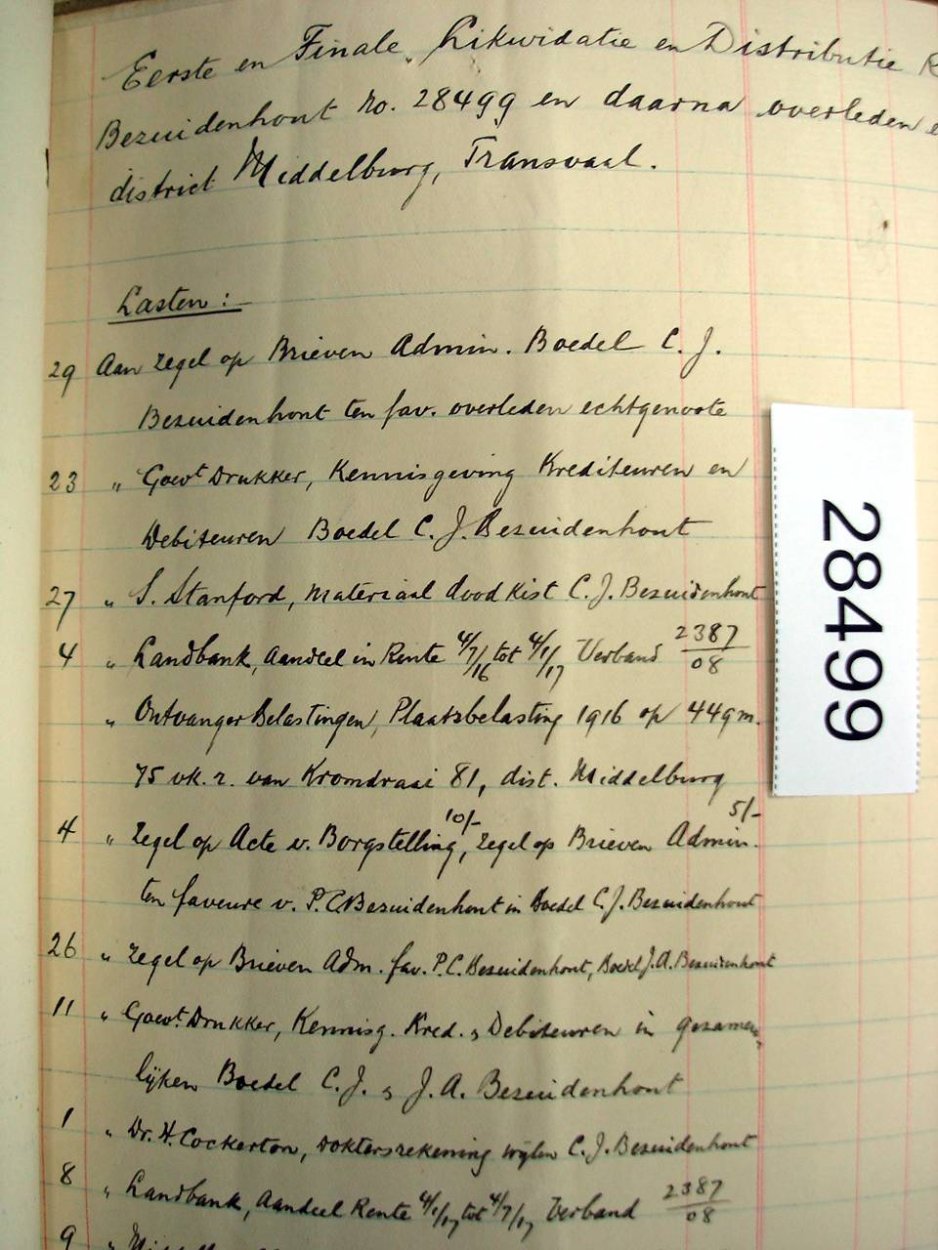 Eerste en Finale Likwidatie en Distributie R
Bezuidenhout No. 28499 en daarna overleden e
district Middelburg, Transvaal.
Lasten :-
29 Aan zegel op Brieven Admin. Boedel C. J.
Bezuidenhout ten fav. overleden echtgenoote
23 " Govt Drukker, Kennisgeving Krediteuren en
Debiteuren Boedel C. J. Bezuidenhout
27 " S. Stanford, materiaal doodkist C. J. Bezuidenhout
4 " Landbank, Aandeel in Rente 4/7/16 tot 4/1/17 Verband 2387/08
" Ontvanger Belastingen, Plaatsbelasting 1916 op 449 m.
75 vk. r. van Kromdraai 81, dist. Middelburg
4 " Zegel op Acte v. Borgstelling, 10/- Zegel op Brieven Admin. 5/-
ten faveure v. P. C. Bezuidenhout in Boedel C. J. Bezuidenhout
26 " Zegel op Brieven Adm. fav. P. C. Bezuidenhout, Boedel J. A. Bezuidenhout
11 " Govt. Drukker, Kennisg. Kred. & Debiteuren in gezamen
lijken Boedel C. J. & J. A. Bezuidenhout
1 " Dr. H. Cockerton, doktersrekening wijlen C. J. Bezuidenhout
8 " Landbank, Aandeel Rente 4/1/17 tot 4/7/17 Verband 2387/08
9 "
28499